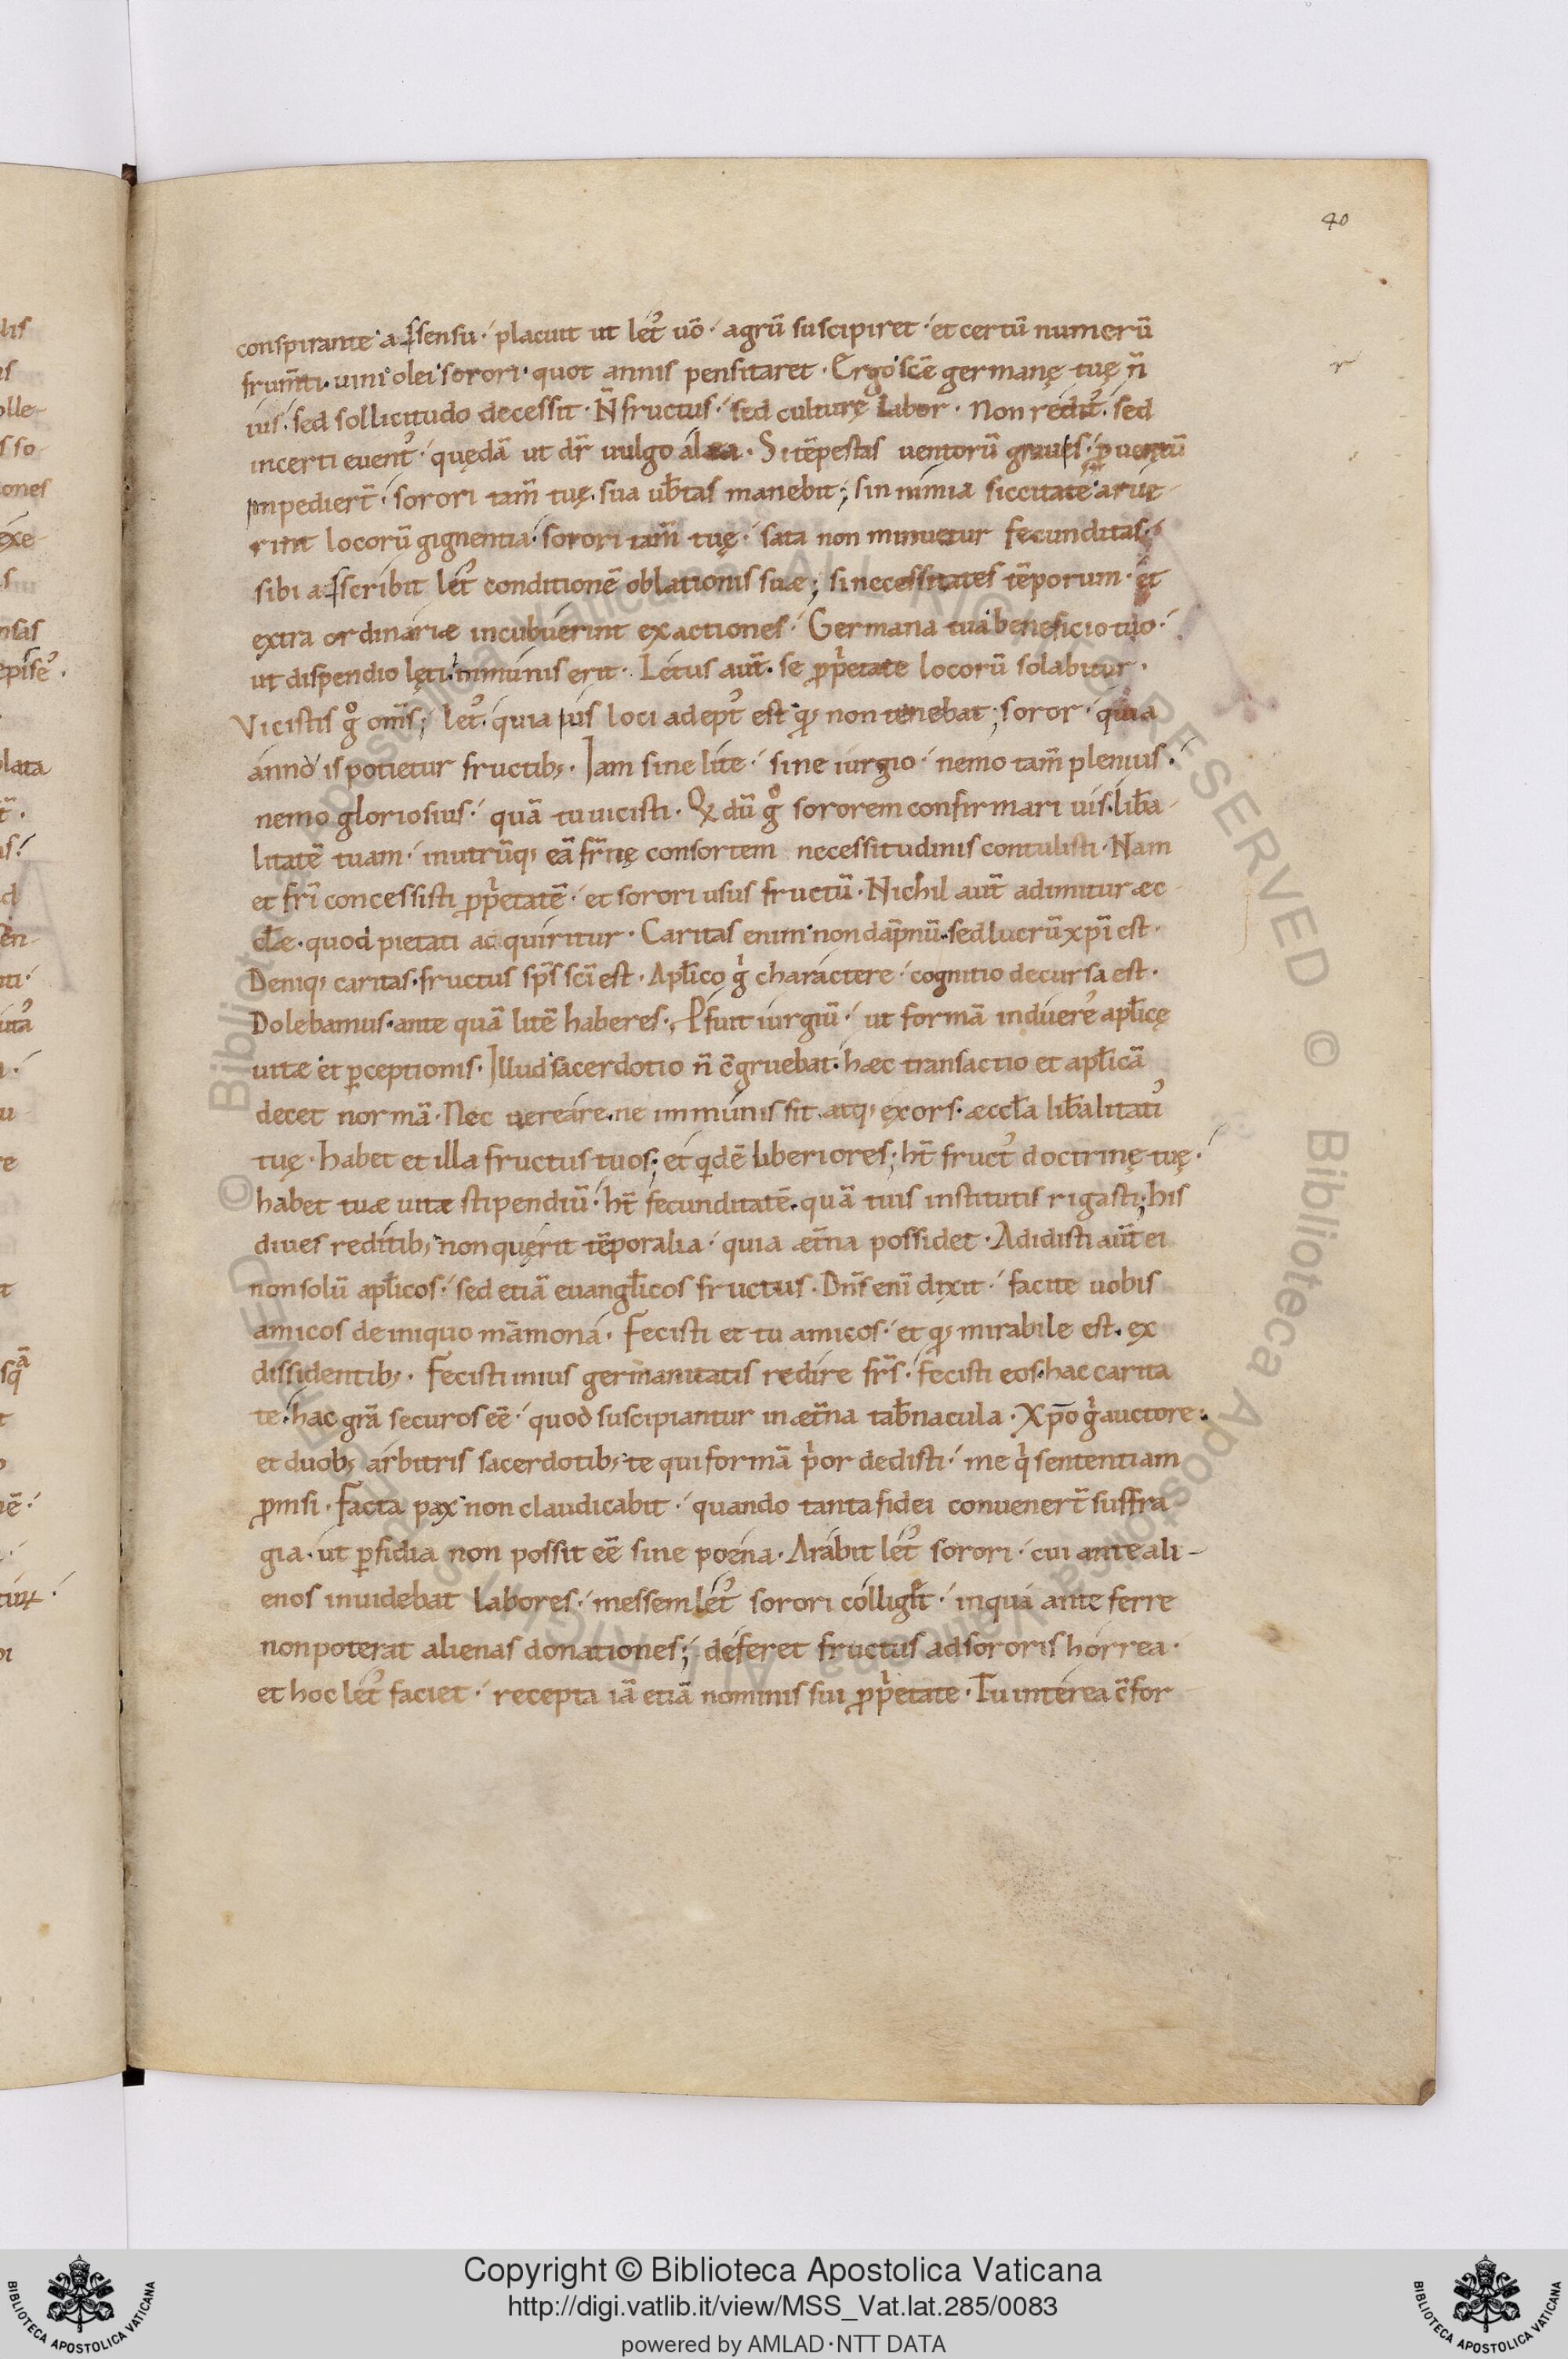 40
conspirante assensu· placuit ut let᾽ uō· agrū susciperet· et certū numerū
frum̄ti· uini olei sorori· quot annis pensitaret· Ergo scē germanę tuę n̄
ius· sed sollicitudo decessit· N̄ fructus· sed culturę labor· Non redit᾽· sed
incerti euent᾽· quędā ut dr̄ uulgo alea· Si tēpestas uentorū graues· puentū
impediert̄· sorori tam̄ tuę· sua ub̄tas manebit; sin nimia siccitate aruę
rint locorū gignentia· sorori tam̄ tuę· sata non minuetur fecunditas·
sibi asscribit let᾽ conditionē oblationis suæ; si necessitates tēporum· et
extra ordinariæ incubuerint exactiones· Germana tua beneficio tuo·
ut dispendio lęti· inmunis erit· Letus aut̄· se ꝓp̄etate locorū solabitur·
Vicistis g° om̄s; let᾽· quia ius loci adept᾽ est qđ non tenebat; soror· quia
anno is potietur fructib;· Iam sine lite· sine iurgio· nemo tam̄ plenius·
nemo gloriosius· quā tu uicisti· Qi dū g° sororem confirmari uis· lib̄a
litatē tuam· inutrūq; eā fr̄nę consortem necessitudinis contulisti· Nam
et fr̄i concessisti ꝓp̄etatē· et sorori usus fructū· Nichil aut̄ adimitur æc
cl̄æ· quod pietati acquiritur· Caritas enim non dāpnū· sed lucrū xp̄i est·
Deniq; caritas· fructus sp̄s sc̄i est· Apl̄ico g̊ charactere· cognitio decursa est·
Dolebamus· ante quā litē haberes· Pfuit iurgiū· ut formā induere᾽ apl̄icę
uitæ et ꝑceptionis· Illud sacerdotio n̄ c̄gruebat· hæc transactio et apl̄icā
decet normā· Nec uereare· ne immunis sit atq; exors· æccl̄a lib̄alitati᾽
tuę· habet et illa fructus tuos; et q̄dē liberiores; ht̄ fruct᾽ doctrinę tuę·
habet tuæ uitæ stipendiū· ht̄ fecunditatē· quā tuis institutis rigasti; his
diues reditib; non quęrit tēporalia· quia æt̄na possidet· Adidisti aut̄ ei
non solū apl̄icos· sed etiā euangl̄icos fructus· Dn̄s eni dixit· facite uobis
amicos de iniquo māmona· Fecisti et tu amicos· et qđ mirabile est· ex
dissidentib;· Fecisti inius germanitatis redire fr̄s· fecisti eos· hac carita
te· hac grā securos eē· quod suscipiantur in æt̄na tab̄nacula· Xp̄o g̊ auctore·
et duob; arbitris sacerdotib; te qui formā p̄or dedisti· me q̄ sententiam
ꝓmsi· Facta pax non claudicabit· quando tanta fidei conuenert̄ suffra
gia· ut ꝑfidia non possit eē sine poena· Arabit let᾽ sorori· cui ante ali-
enos inuidebat labores· messem let᾽ sorori colligit· in qua ante ferre
non poterat alienas donationes; deferet fructus ad sororis horrea·
et hoc let᾽ faciet· recepta iā etiā nominis sui ꝓp̄etate· Tu interea c̄for
Copyright © Biblioteca Apostolica Vaticana
http://digi.vatlib.it/view/MSS_Vat.lat.285/0083
powered by AMLAD·NTT DATA